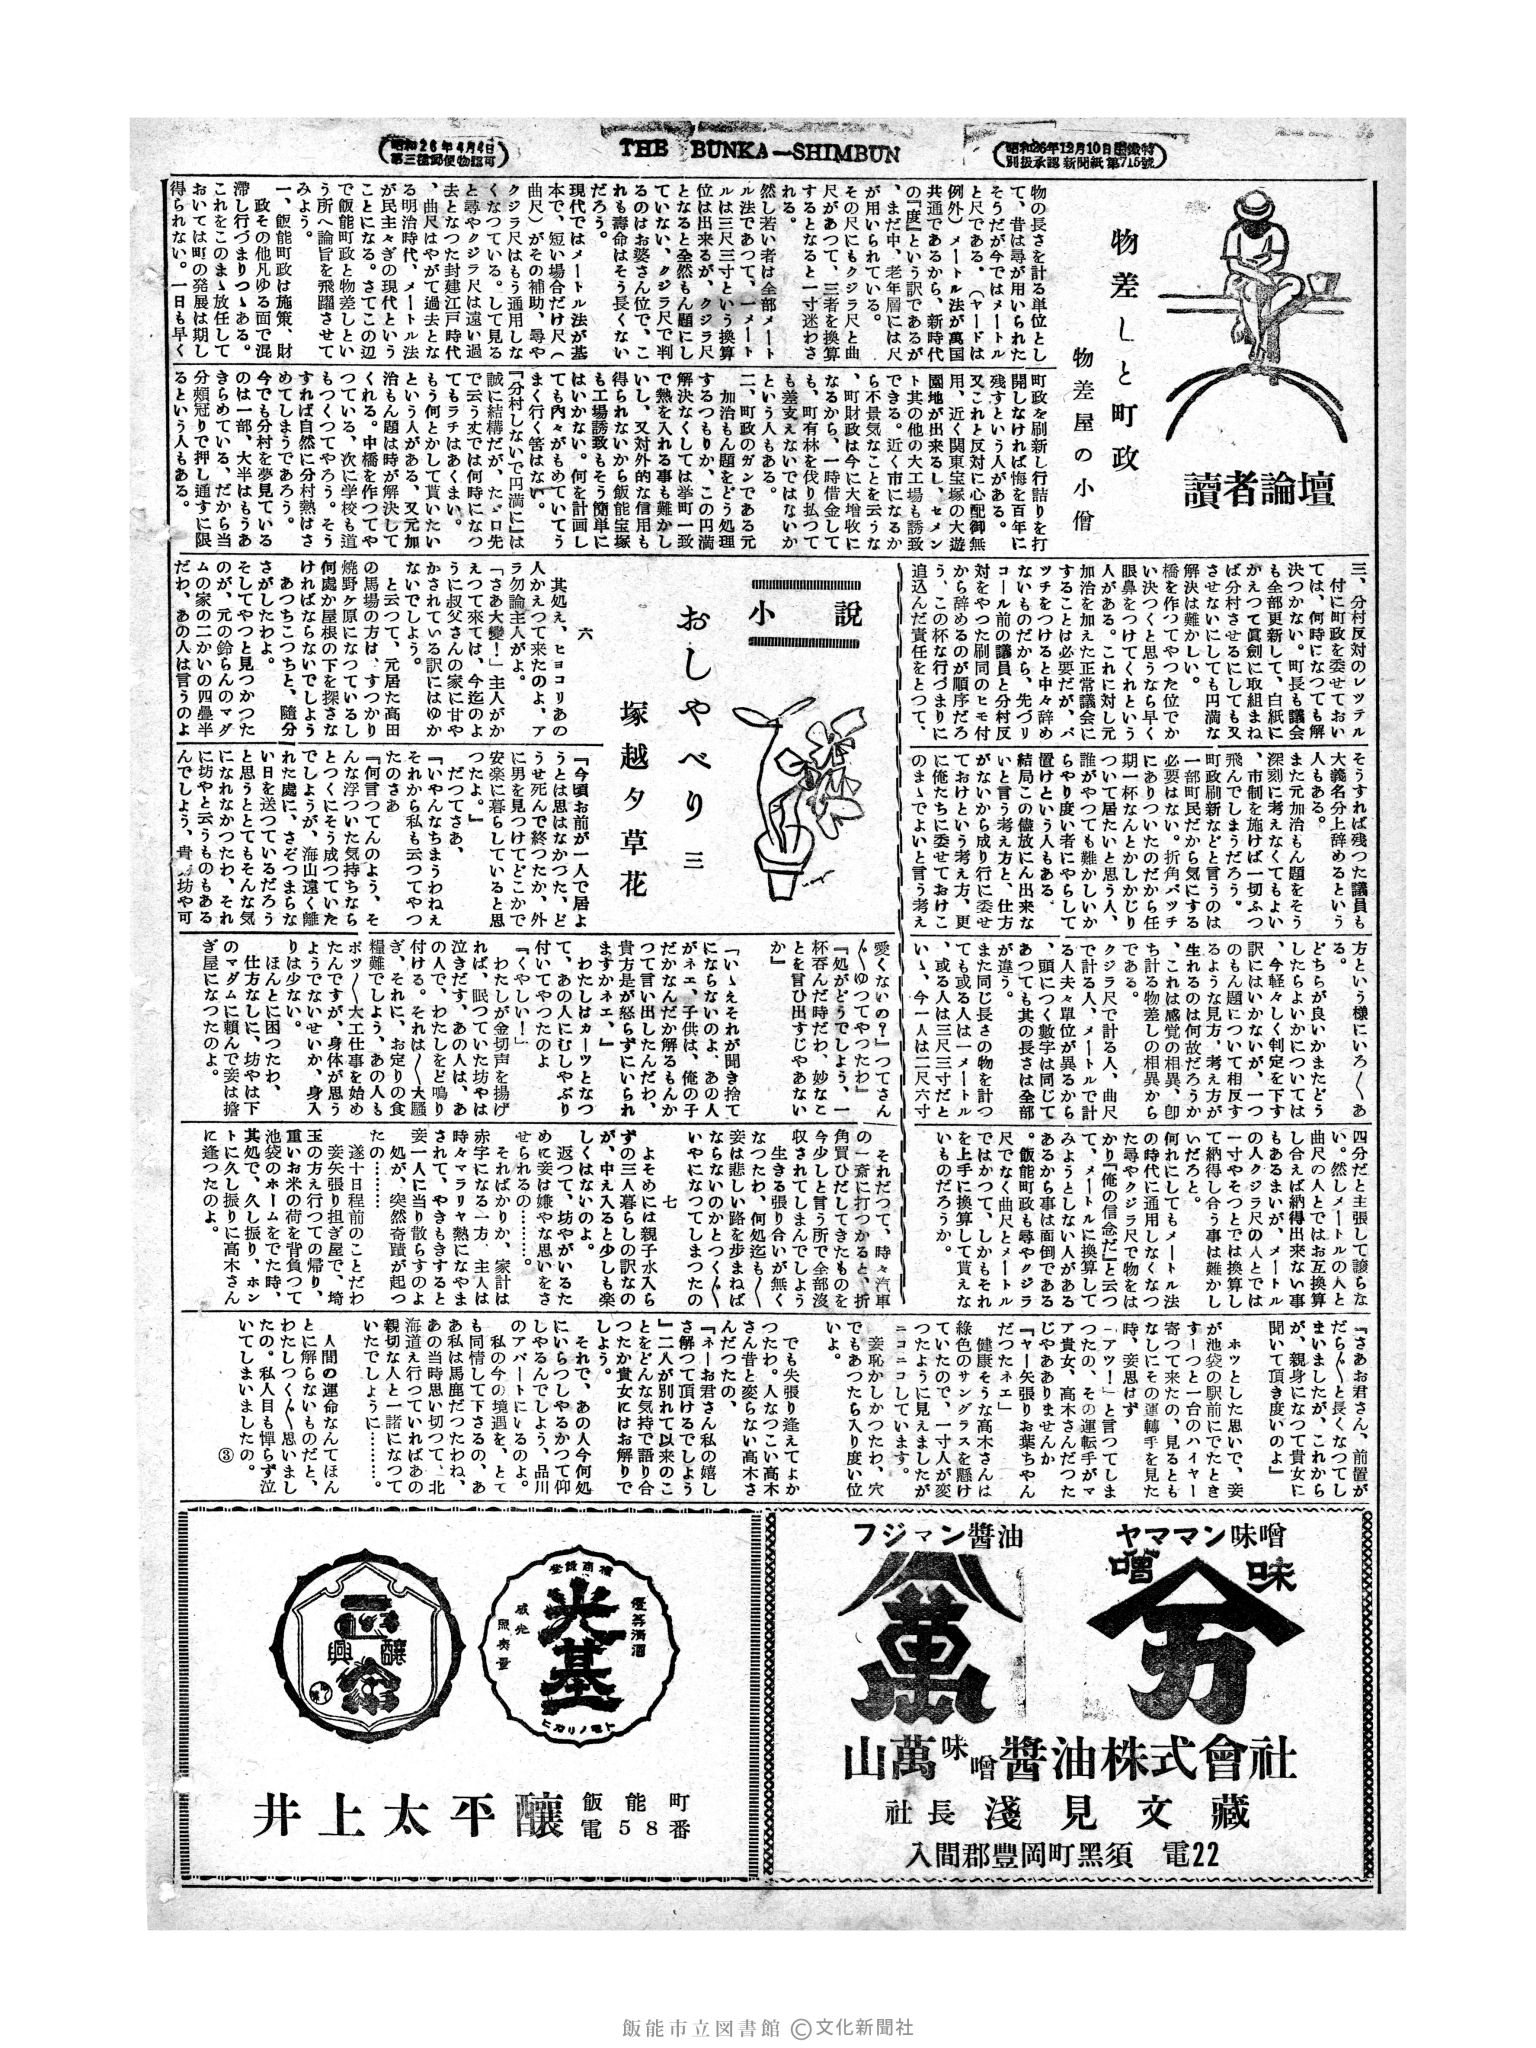 昭和26年4月4日
第三種郵便物認可
THE BUNKA—SHIMBUN
昭和26年12月10日国鉄特
別扱承認新聞紙第715號
讀者論壇
物差しと町政
物差屋の小僧
物の長さを計る単位とし
て、昔は尋が用いられた
そうだが今ではメートル
と尺である。(ヤードは
例外)メートル法が萬国
共通であるから、新時代
の『度』という訳であるが
、まだ中、老年層には尺
が用いられている。
その尺にもクジラ尺と曲
尺があつて、三者を換算
するとなると一寸迷わさ
れる。
然し若い者は全部メート
ル法であつて、一メート
ルは三尺三寸という換算
位は出来るが、クジラ尺
となると全然もん題にし
ていない、クジラ尺で判
るのはお婆さん位で、こ
れも壽命はそう長くない
だろう。
現代ではメートル法が基
本で、短い場合だけ尺(
曲尺)がその補助、尋や
クジラ尺はもう通用しな
くなつている。して見る
と尋やクジラ尺は遠い過
去となつた封建江戸時代
、曲尺はやがて過去とな
る明治時代、メートル法
が民主々ぎの現代という
ことになる。さてこの辺
で飯能町政と物差しとい
う所へ論旨を飛躍させて
みよう。
一、飯能町政は施策、財
政その他凡ゆる面で混
滞し行づまりつゝある。
これをこのまゝ放任して
おいては町の発展は期し
得られない。一日も早く
町政を刷新し行詰りを打
開しなければ悔を百年に
残すという人がある。
又これと反対に心配御無
用、近く関東宝塚の大遊
園地が出来るし、セメン
ト其の他の大工場も誘致
できる。近く市になるか
ら不景気なことを云うな
、町財政は今に大増收に
なるから、一時借金して
も、町有林を伐り払つて
も差支えないではないか
という人もある。
二、町政のガンである元
加治もん題をどう処理
するつもりか、この円満
解決なくしては挙町一致
で熱を入れる事も難かし
いし、又対外的な信用も
得られないから飯能宝塚
も工場誘致もそう簡単に
はいかない。何を計画し
ても内々がもめていてう
まく行く筈はない。
『分村しないで円満に』は
誠に結構だが、たゞロ先
で云う丈では何時になつ
てもラチはあくまい。
もう何とかして貰いたい
という人がある、又元加
治もん題は時が解決して
くれる。中橋を作つてや
つている、次に学校も道
もつくつてやろう。そう
すれば自然に分村熱はさ
めてしまうであろう。
今でも分村を夢見ている
のは一部、大半はもうあ
きらめている、だから当
分頬冠りで押し通すに限
るという人もある。
三、分村反対のレッテル
付に町政を委せておい
ては、何時になつても解
決つかない。町長も議会
も全部更新して、白紙に
かえつて眞劍に取組まね
ば分村させるにしても又
させないにしても円満な
解決は難かしい。
橋を作つてやつた位でか
い決つくと思うなら早く
眼鼻をつけてくれという
人がある。これに対し元
加治を加えた正常議会に
することは必要だが、バ
ツチをつけると中々辞め
ないものだから、先づリ
コール前の議員と分村反
対をやつた刷同のヒモ付
から辞めるのが順序だろ
う、この杯な行づまりに
追込んだ責任をとつて、
そうすれば残つた議員も
大義名分上辞めるという
人もある。
また元加治もん題をそう
深刻に考えなくてもよい
、市制を施けば一切ふつ
飛んでしまうだろう。
町政刷新などと言うのは
一部町民だから気にする
必要はない。折角バッチ
にありついたのだから任
期一杯なんとかしかじり
ついて居たいと思う人、
誰がやつても難かしいか
らやり度い者にやらして
置けという人もある。
結局この儘放にん出来な
いと言う考え方と、仕方
がないから成り行に委せ
ておけという考え方、更
に俺たちに委せておけこ
のまゝでよいと言う考え
方という様にいろ〱あ
る。
どちらが良いかまたどう
したらよいかについては
、今軽々しく判定を下す
訳にはいかないが、一つ
のもん題について相反す
るような見方、考え方が
生れるのは何故だろうか
、これは感覚の相異、卽
ち計る物差しの相異から
である。
クジラ尺で計る人、曲尺
で計る人、メートルで計
る人夫々單位が異るから
、頭につく数字は同じて
あつても其の長さは全部
が違う。
また同じ長さの物を計つ
ても或る人は一メートル
、或る人は三尺三寸だと
いゝ、今一人は二尺六寸
四分だと主張して譲らな
い。然しメートルの人と
曲尺の人とではお互換算
し合えば納得出来ない事
もあるまいが、メートル
の人クジラ尺の人とでは
一寸やそつとでは換算し
て納得し合う事は難かし
いだろと。
何れにしてもメートル法
の時代に通用しなくなつ
た尋やクジラ尺で物をは
かり『俺の信念だ』と云つ
て、メートルに換算して
みようとしない人がある
あるから事は面倒である
。飯能町政も尋やクジラ
尺でなく曲尺とメートル
ではかつて、しかもそれ
を上手に換算して貰えな
いものだろうか。
小説
おしやべり 三
塚越夕草花
六
其処え、ヒヨコリあの
人かえつて来たのよ、ア
ラ勿論主人がよ。
「さあ大變！」主人がか
えつて來ては、今迄のよ
うに叔父さんの家に甘や
かされている訳にはゆか
ないでしよう。
と云つて、元居た高田
の馬場の方は、すつかり
焼野ヶ原になつているし
何處か屋根の下を探さな
ければならないでしよう
あつちこつちと、隨分
さがしたわよ。
そしてやつと見つかつた
のが、元の鈴らんのマダ
ムの家の二かいの四疊半
だわ、あの人は言うのよ
『今頃お前が一人で居よ
うとは思はなかつた、ど
うせ死んで終つたか、外
に男を見つけてどこかで
安楽に暮らしていると思
つたよ。』
だつてさあ、
『いやんなちまうわねえ
それから私も云つてやつ
たのさあ
『何言つてんのよう、そ
んな浮ついた気持ちなら
とつくにそう成つていた
でしようが、海山遠く離
れた處に、さぞつまらな
い日を送つているだろう
と思うととてもそんな気
になれなかつたわ、それ
に坊やと云うものもある
んでしよう、貴方坊や可
愛くないの？』つてさん
〲ゆつてやつたわ』
『処がどうでしよう、一
杯呑んだ時だわ、妙なこ
とを言ひ出すじやあない
か』
「いゝえそれが聞き捨て
にならないのよ、あの人
がネエ、子供は、俺の子
だかなんだか解るもんか
つて言い出したんだわ、
貴方是が怒らずにいられ
ますかネエ、』
わたしはカーツとなつ
て、あの人にむしやぶり
付いてやつたのよ
「くやしい！」
わたしが金切声を揚げ
れば、眠つていた坊やは
泣きだす、あの人は、あ
の人で、わたしをど鳴り
付ける。それは〱大騒
ぎ、それに、お定りの食
糧難でしよう、あの人も
ボツ〱大工仕事を始め
たんですが、身体が思う
ようでないせいか、身入
りは少ない。
ほんとに困つたわ、
仕方なしに、坊やは下
のマダムに頼んで妾は担
ぎ屋になつたのよ。
それだつて、時々汽車
の一斎に打つかると、折
角買ひだしてきたものを
今少しと言う所で全部沒
収されてしまんでしよう
生きる張り合いが無く
なつたわ、何処迄も〱
妾は悲しい路を歩まねば
ならないのかとつく〲
いやになつてしまつたの
七
よそめには親子水入ら
ずの三人暮らしの訳なの
が、中え入ると少しも楽
しくはないのよ。
返つて、坊やがいるた
めに妾は嫌やな思いをさ
せられるの………。
そればかりか、家計は
赤字になる一方、主人は
時々マラリヤ熱になやま
されて、やきもきすると
妾一人に当り散らすのよ
処が、突然奇蹟が起つ
たの…………
遂十日程前のことだわ
妾矢張り担ぎ屋で、埼
玉の方え行つての帰り、
重いお米の荷を背負つて
池袋のホームをでた時、
其処で、久し振り、ホン
トに久し振りに高木さん
に逢つたのよ。
『さあお君さん、前置が
だら〱と長くなつてし
まいましたが、これから
が、親身になつて貴女に
聞いて頂き度いのよ』
ホツとした思いで、妾
が池袋の駅前にでたとき
すーつと一台のハイャー
寄つて来たの、見るとも
なしにその運轉手を見た
時、妾思はず
「アツ！」と言つてしま
つたの、その運転手がマ
ア貴女、高木さんだつた
じやありませんか
『ヤー矢張りお葉ちやん
だつたネエ」
健康そうな高木さんは
綠色のサングラスを懸け
ていたので、一寸人が変
つたように見えましたが
ニコニコしています。
妾恥かしかつたわ、穴
でもあつたら入り度い位
いよ。
でも失張り逢えてよか
つたわ。人なつこい高木
さん昔と変らない高木さ
んだつたの、
『ネーお君さん私の嬉し
さ解つて頂けるでしよう
』二人が別れて以来のこ
とをどんな気持で語り合
つたか貴女にはお解りで
しよう。
それで、あの人今何処
にいらつしやるかつて仰
しやるんでしよう、品川
のアパートにいるのよ。
私の今の境遇を、とて
も同情して下さるの、あ
あ私は馬鹿だつたわね、
あの当時思い切つて、北
海道え行つていればあの
親切な人と一諸になつて
いたでしように………。
人間の運命なんてほん
とに解らないものだと、
わたしつく〲思いまし
たの。私人目も憚らず泣
いてしまいましたの。
③
フジマン醬油
ヤママン味噌
味噌
萬
万
山萬味噌醬油株式會社
社長 淺見文藏
入間郡豊岡町黑須 電22
登録商標
優等清酒
光基
ヒカリノモト
醸
興
井上太平醸
飯能町
電58番
飯能市立図書館 ©文化新聞社